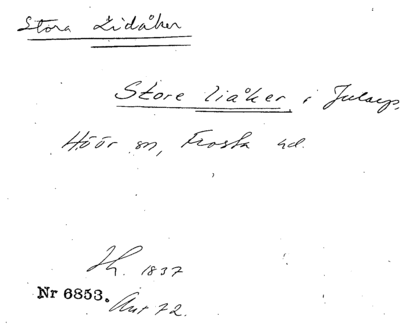 Stora Lidåker
Store liåker, i Jularp,
Höör sn, Frosta hd.
Jh. 1837
Nr 6853.
Akt 72.